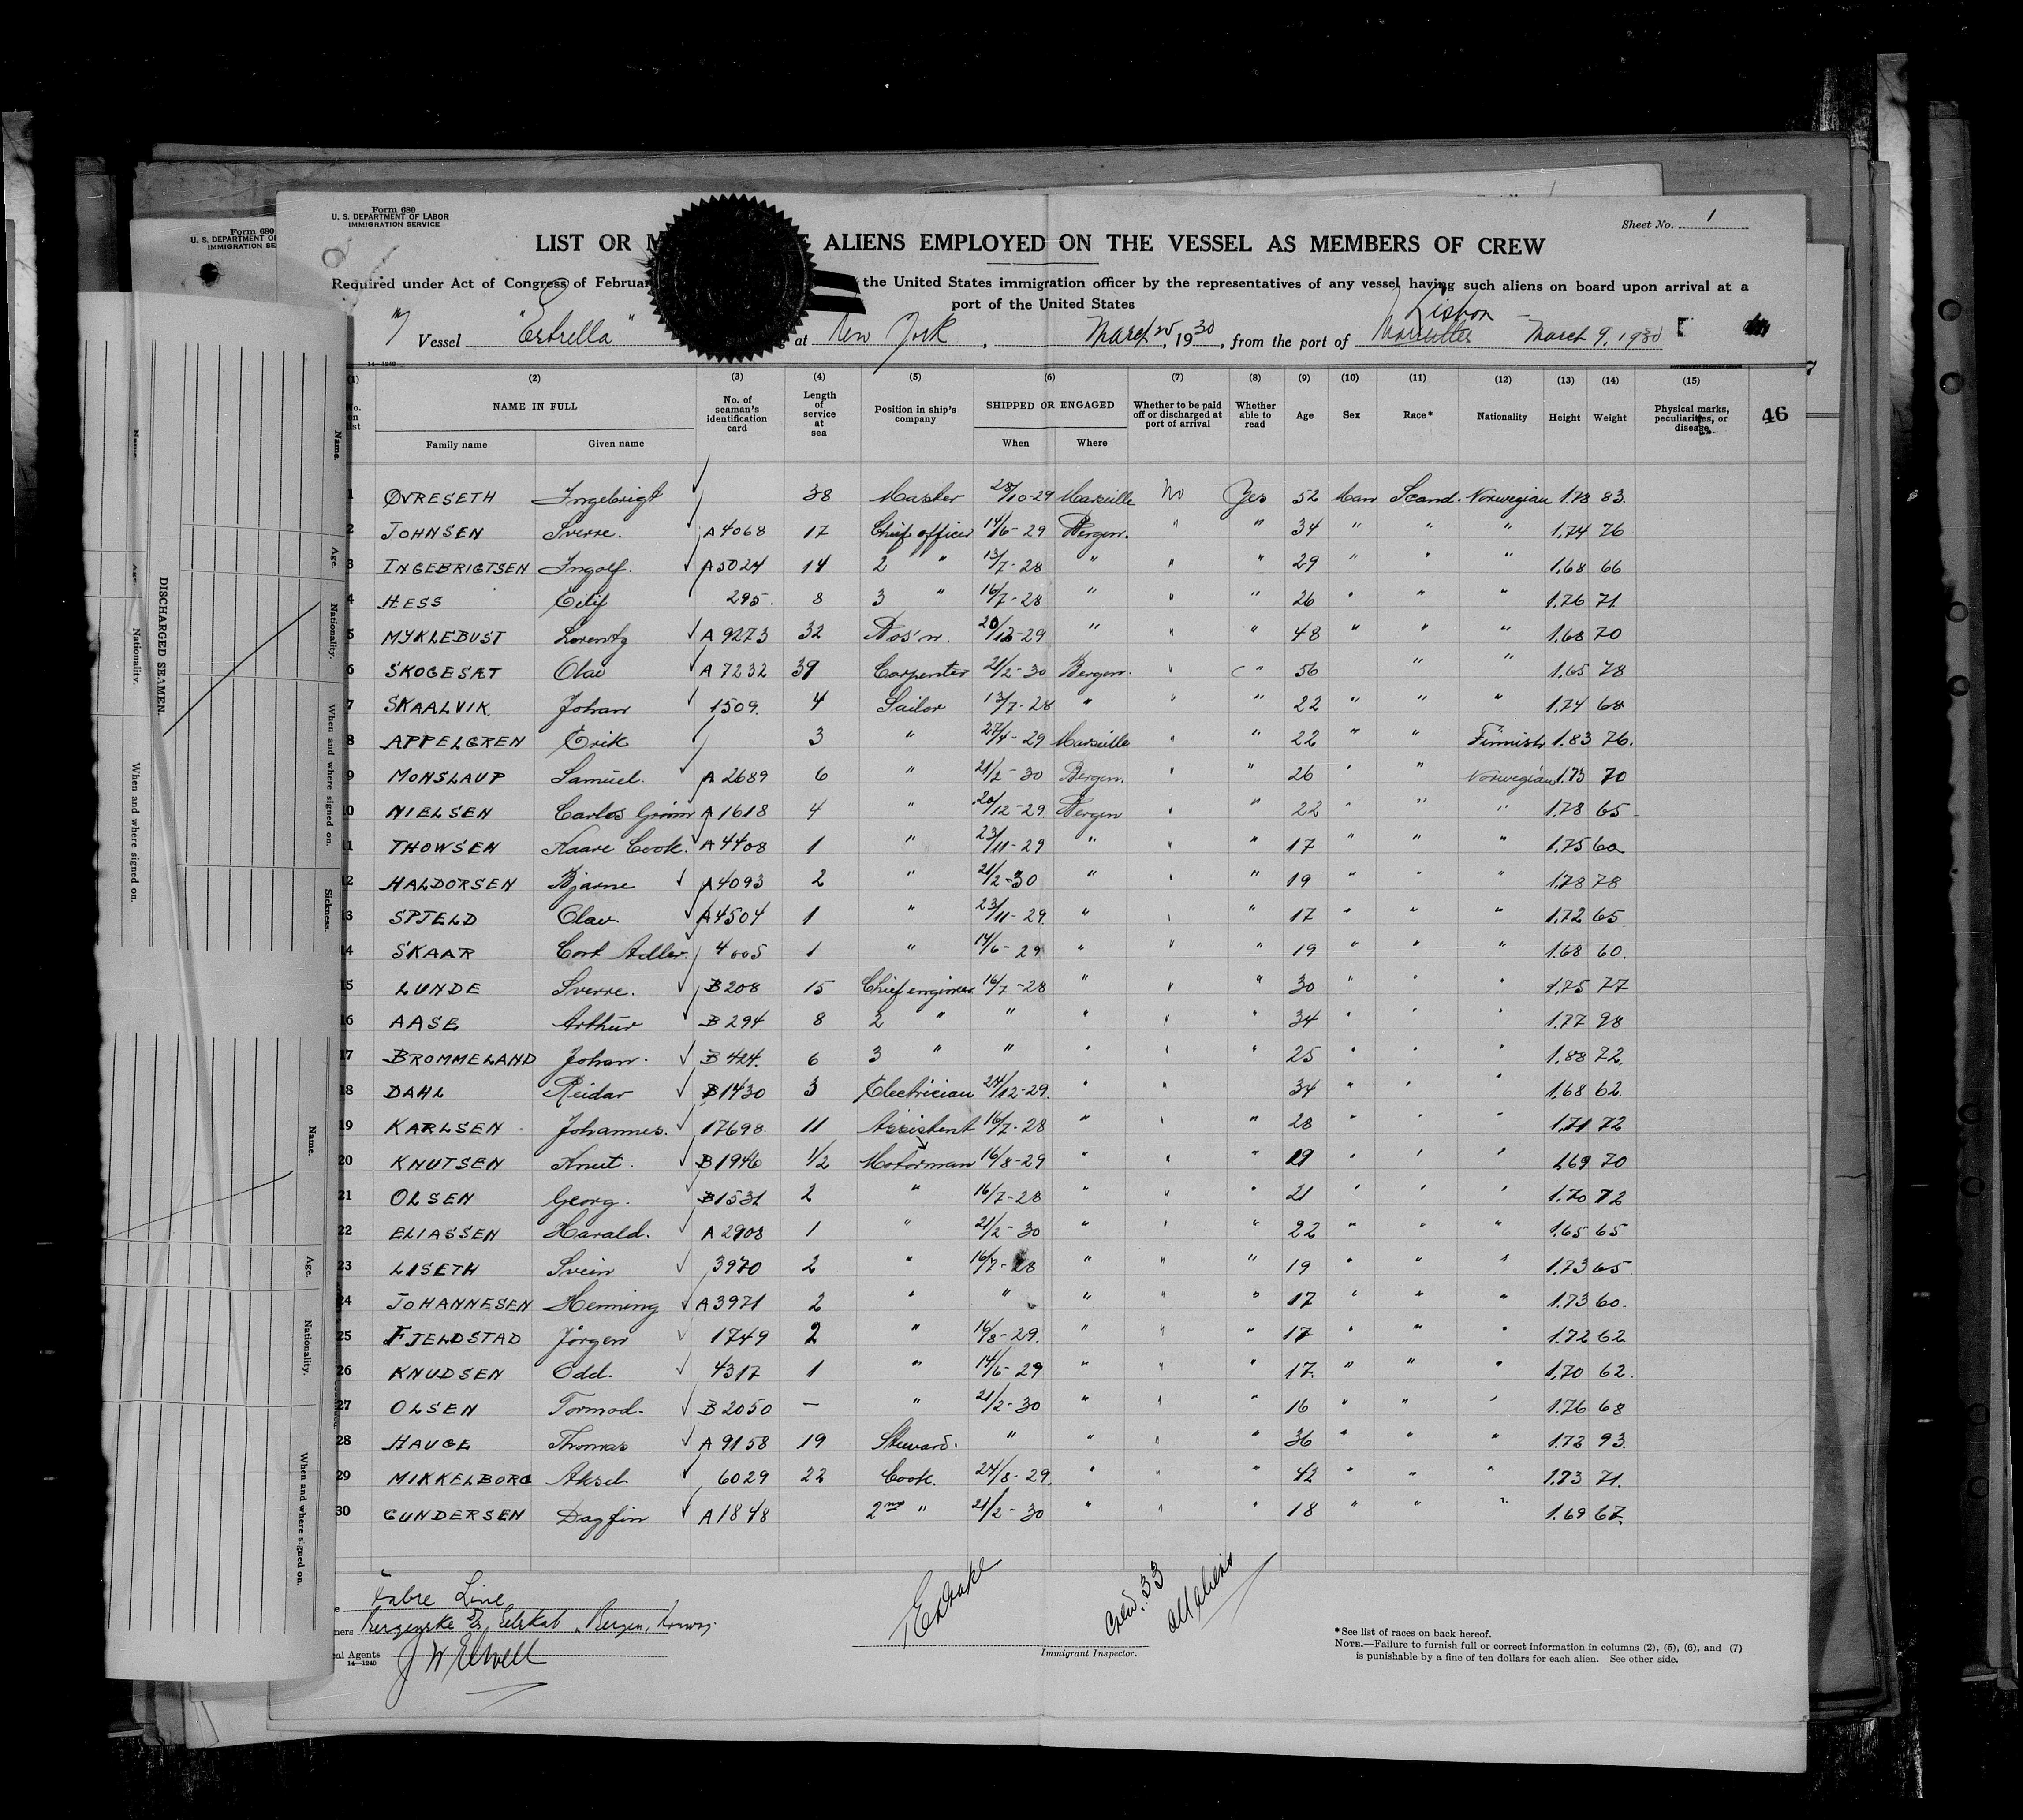 Form 680
U. S. DEPARTMENT OF LABOR
IMMIGRATION SERVICE
Form 680
U. S. DEPARTMENT OF
IMMIGRATION SE
Sheet No. 1
LIST OR M ALIENS EMPLOYED ON THE VESSEL AS MEMBERS OF CREW
Required under Act of Congress of Februar the United States immigration officer by the representatives of any vessel having such aliens on board upon arrival at a
port of the United States
Lisbon
Vessel "Estrella" at New York, March 25, 1930, from the port of Marseilles March 9, 1930
14—1240
(1) (2) (3) (4) (5) (6) (7) (8) (9) (10) (11) (12) (13) (14) (15)
No. on list NAME IN FULL No. of seaman's identification card Length of service at sea Position in ship's company SHIPPED OR ENGAGED Whether to be paid off or discharged at port of arrival Whether able to read Age Sex Race* Nationality Height Weight Physical marks, peculiarities, or disease 46
Family name Given name When Where
1 ØVRESETH Ingebrigt 38 Master 28/10-29 Marseille No Yes 52 Man Scand. Norwegian 1.78 83.
2 JOHNSEN Sverre. A4068 17 Chief officer 14/6-29 Bergen. " " 34 " " " 1.74 76
3 INGEBRIGTSEN Ingolf. A5024 14 2 " 13/7-28 " " " 29 " " " 1.68 66
4 HESS Eilif 295. 8 3 " 16/7-28 " " " 26 " " " 1.76 71
5 MYKLEBUST Lorentz A 9273 32 Bos'n. 20/12-29 " " " 48 " " " 1.68 70
6 SKOGESÆT Olav A 7232 39 Carpenter 21/2-30 Bergen. " " 56 " " 1.65 78
7 SKAALVIK Johan 1509. 4 Sailor 13/7-28 " " " 22 " " " 1.74 68
8 APPELGREN Erik 3 " 27/4-29 Marseille " " 22 " " Finnish 1.83 76.
9 MONSLAUP Samuel. A 2689 6 " 21/2-30 Bergen. " " 26 " " Norwegian 1.73 70
10 NIELSEN Carlos Grönn A 1618 4 " 20/12-29 Bergen " " 22 " " " 1.78 65
11 THOWSEN Kaare Cook. A 4408 1 " 23/11-29 " " " 17 " " " 1.75 60
12 HALDORSEN Bjarne A4093 2 " 21/2-30 " " " 19 " " " 1.78 78
13 SPJELD Olav. A4504 1 " 23/11-29 " " " 17 " " " 1.72 65
14 SKAAR Cort Adler. 4005 1 " 14/6-29 " " " 19 " " " 1.68 60.
15 LUNDE Sverre. B208 15 Chief engineer 16/7-28 " " " 30 " " " 1.75 77
16 AASE Arthur B 294 8 2 " " " " " 34 " " " 1.77 98
17 BROMMELAND Johan. B 424. 6 3 " " " " " 25 " " " 1.88 72.
18 DAHL Reidar B1430 3 Electrician 24/12-29. " " " 34 " " " 1.68 62.
19 KARLSEN Johannes. 17698 11 Assistent 16/7-28 " " " 28 " " " 1.71 72
20 KNUTSEN Knut. B1946 1/2 Motorman 16/8-29 " " " 19 " " " 1.69 70
21 OLSEN Georg. B1531 2 " 16/7-28 " " " 21 " " " 1.70 72
22 ELIASSEN Harald. A 2908 1 " 21/2-30 " " " 22 " " " 1.65 65
23 LISETH Svein 3970 2 " 16/7-28 " " " 19 " " " 1.73 65
24 JOHANNESEN Henning A3971 2 " " " " " 17 " " " 1.73 60.
25 FJELDSTAD Jörgen 1749 2 " 16/8-29. " " " 17 " " " 1.72 62
26 KNUDSEN Odd. 4317 1 " 14/6-29 " " " 17. " " " 1.70 62.
27 OLSEN Tormod. B 2050 — " 21/2-30 " " " 16 " " " 1.76 68
28 HAUGE Thomas A 9158 19 Steward. " " " " 36 " " " 1.72 93.
29 MIKKELBORG Aksel 6029 22 Cook. 24/8-29. " " " 42 " " " 1.73 71.
30 GUNDERSEN Dagfin A1848 2nd " 21/2-30 " " " 18 " " " 1.69 67.
Fabre Line
Bergenske Bergen, Norway.
J W Elwell
14—1240
Immigrant Inspector.
Crew. 33
all aliens
*See list of races on back hereof.
NOTE.—Failure to furnish full or correct information in columns (2), (5), (6), and (7)
is punishable by a fine of ten dollars for each alien. See other side.
DISCHARGED SEAMEN.
Name. Age. Nationality. When and where signed on. Sickness.
Name. Age. Nationality. When and where signed on.
Nationality. When and where signed on.